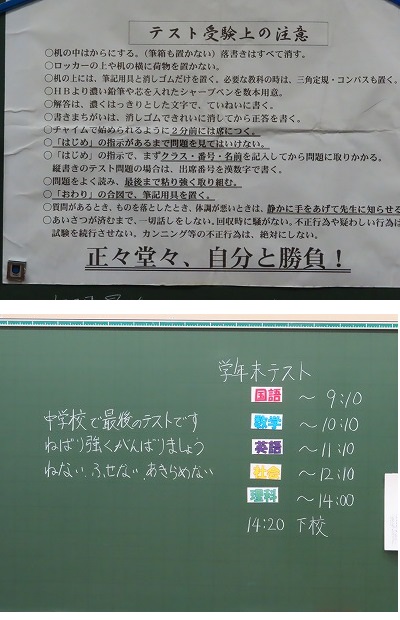 テスト受験上の注意
○机の中はからにする。（筆箱も置かない）落書きはすべて消す。
○ロッカーの上や机の横に荷物を置かない。
○机の上には、筆記用具と消しゴムだけを置く。必要な教科の時は、三角定規・コンパスも置く。
○HBより濃い鉛筆や芯を入れたシャープペンを数本用意。
○解答は、濃くはっきりとした文字で、ていねいに書く。
○書きまちがいは、消しゴムできれいに消してから正答を書く。
○チャイムで始められるように2分前には席につく。
○「はじめ」の指示があるまで問題を見てはいけない。
○「はじめ」の指示で、まずクラス・番号・名前を記入してから問題に取りかかる。
縦書きのテスト問題の場合は、出席番号を漢数字で書く。
○問題をよく読み、最後まで粘り強く取り組む。
○「おわり」の合図で、筆記用具を置く。
○質問があるとき、ものを落としたとき、体調が悪いときは、静かに手をあげて先生に知らせる
○あいさつが済むまで、一切話しをしない。回収時に騒がない。不正行為や疑わしい行為は
試験を続行させない。カンニング等の不正行為は、絶対にしない。
正々堂々、自分と勝負！
学年末テスト
国語 〜 9:10
数学 〜10:10
英語 〜11:10
社会 〜12:10
理科 〜14:00
14:20 下校
中学校で最後のテストです
ねばり強くがんばりましょう
ねない ふせない あきらめない